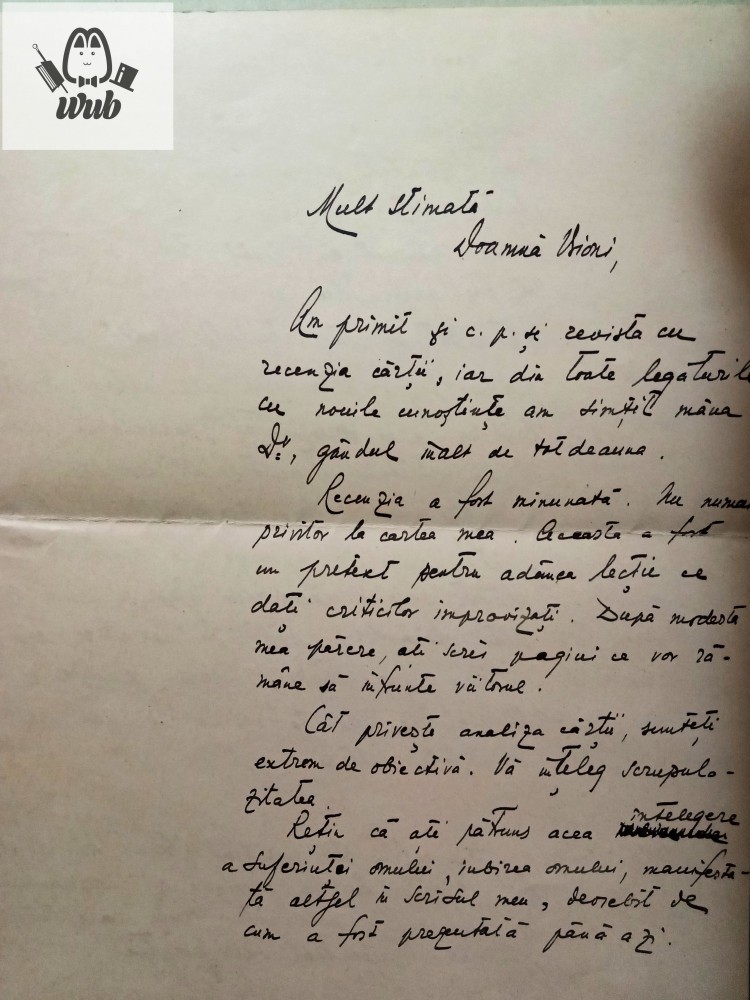 wub
Mult stimată
Doamnă Bioni,
Am primit și c. p. și revista cu
recenzia cărții, iar din toate legăturile
cu nouile cunoștințe am simțit mâna
Dv, gândul înalt de totdeauna.
Recenzia a fost minunată. Nu numai
privitor la cartea mea. Aceasta a fost
un pretext pentru adânca lecție ce
dați criticilor improvizați. După modesta
mea părere, ați scris pagini ce vor ră-
mâne să înfrunte viitorul.
Cât privește analiza cărții, sunteți
extrem de obiectivă. Vă înțeleg scrupulo-
zitatea.
Rețin că ați pătruns acea înțelegere
a suferinței omului, iubirea omului, manifesta-
tă altfel în scrisul meu, deosebit de
cum a fost prezentată până azi.